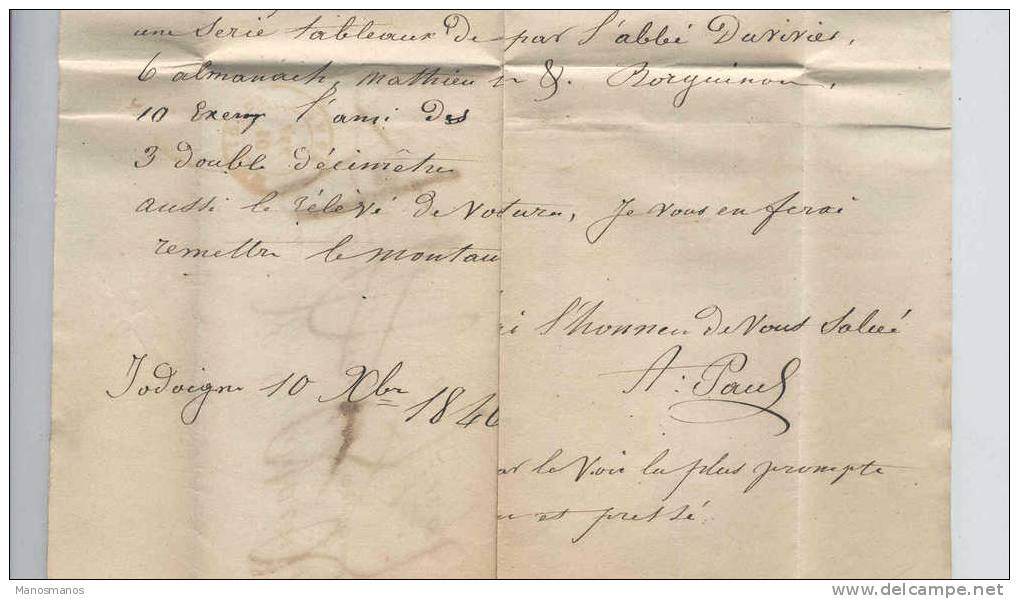 une Serie tableaux de par l'abbé Duvivier,
6 almanach, Mathieu & Borguinon,
10 Exemp l'ami des
3 double décimêtre
aussi le rélévé de Voture, Je vous en ferai
remettre le montau
l'honneu de Vous Salué
A: Paul
Jodoigne 10 Xbre 1846
la plus prompte
est pressé
Manosmanos
delcampe.net